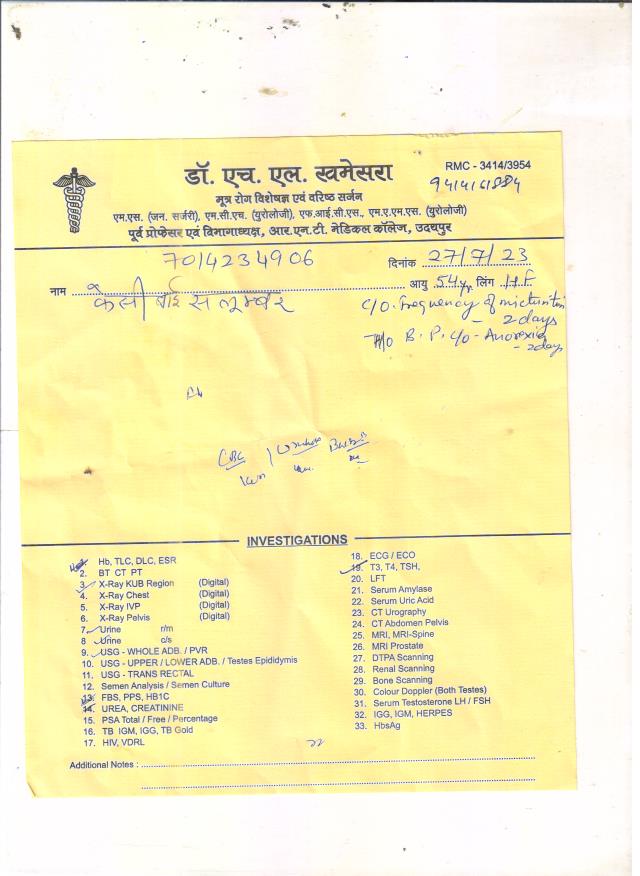 डॉ. एच. एल. खमेसरा
RMC - 3414/3954
मूत्र रोग विशेषज्ञ एवं वरिष्ठ सर्जन
एम.एस. (जन. सर्जरी), एम.सी.एच. (युरोलोजी), एफ.आई.सी.एस., एम.ए.एम.एस. (युरोलोजी)
पूर्व प्रोफेसर एवं विभागाध्यक्ष, आर.एन.टी. मेडिकल कॉलेज, उदयपुर
7014234906
दिनांक 27/7/23
नाम बाई सलूम्बर आयु 54 yr लिंग F
C/O. Frequency of micturition
- 2 days
H/O B.P. C/O - Anorexia
- 2 days
CBC
INVESTIGATIONS
1. Hb, TLC, DLC, ESR
2. BT CT PT
3. X-Ray KUB Region (Digital)
4. X-Ray Chest (Digital)
5. X-Ray IVP (Digital)
6. X-Ray Pelvis (Digital)
7. Urine r/m
8 Urine c/s
9. USG - WHOLE ADB. / PVR
10. USG - UPPER / LOWER ADB. / Testes Epididymis
11. USG - TRANS RECTAL
12. Semen Analysis / Semen Culture
13. FBS, PPS, HB1C
14. UREA, CREATININE
15. PSA Total / Free / Percentage
16. TB IGM, IGG, TB Gold
17. HIV, VDRL
18. ECG / ECO
19. T3, T4, TSH,
20. LFT
21. Serum Amylase
22. Serum Uric Acid
23. CT Urography
24. CT Abdomen Pelvis
25. MRI, MRI-Spine
26. MRI Prostate
27. DTPA Scanning
28. Renal Scanning
29. Bone Scanning
30. Colour Doppler (Both Testes)
31. Serum Testosterone LH / FSH
32. IGG, IGM, HERPES
33. HbsAg
Additional Notes :